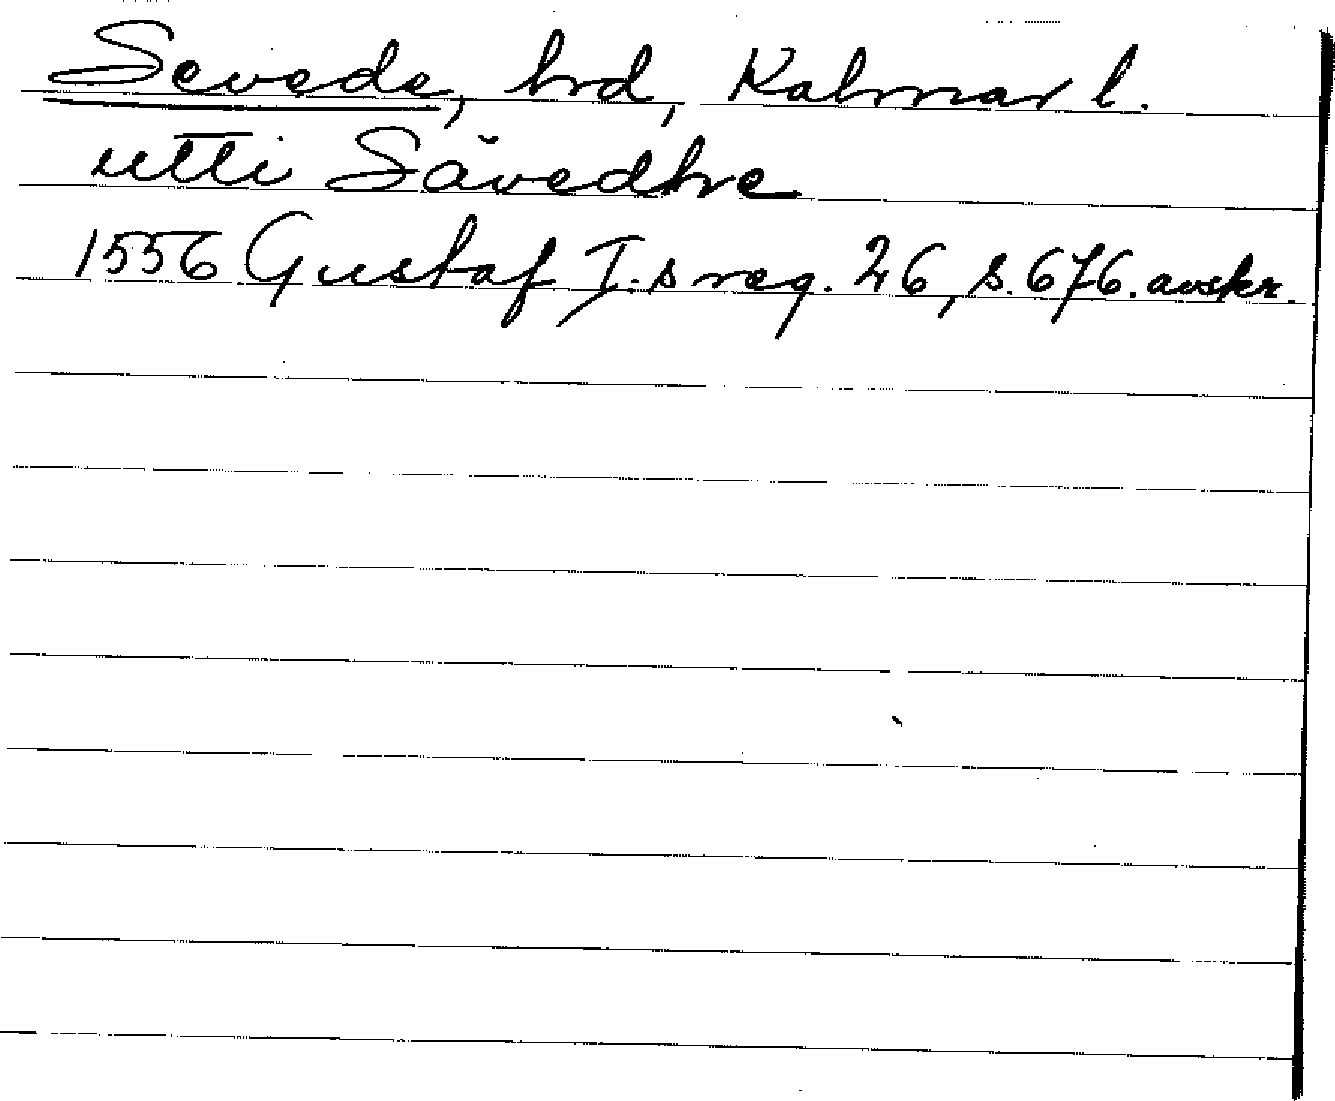 Sevede, hrd, Kalmar l.
utti Sävedhre
1556 Gustaf I.s reg. 26, s. 676. avskr.